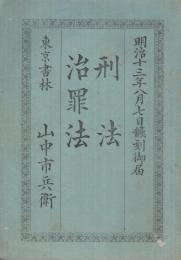 明治十三年八月七日飜刻御届
刑法
治罪法
東京書林
山中市兵衛